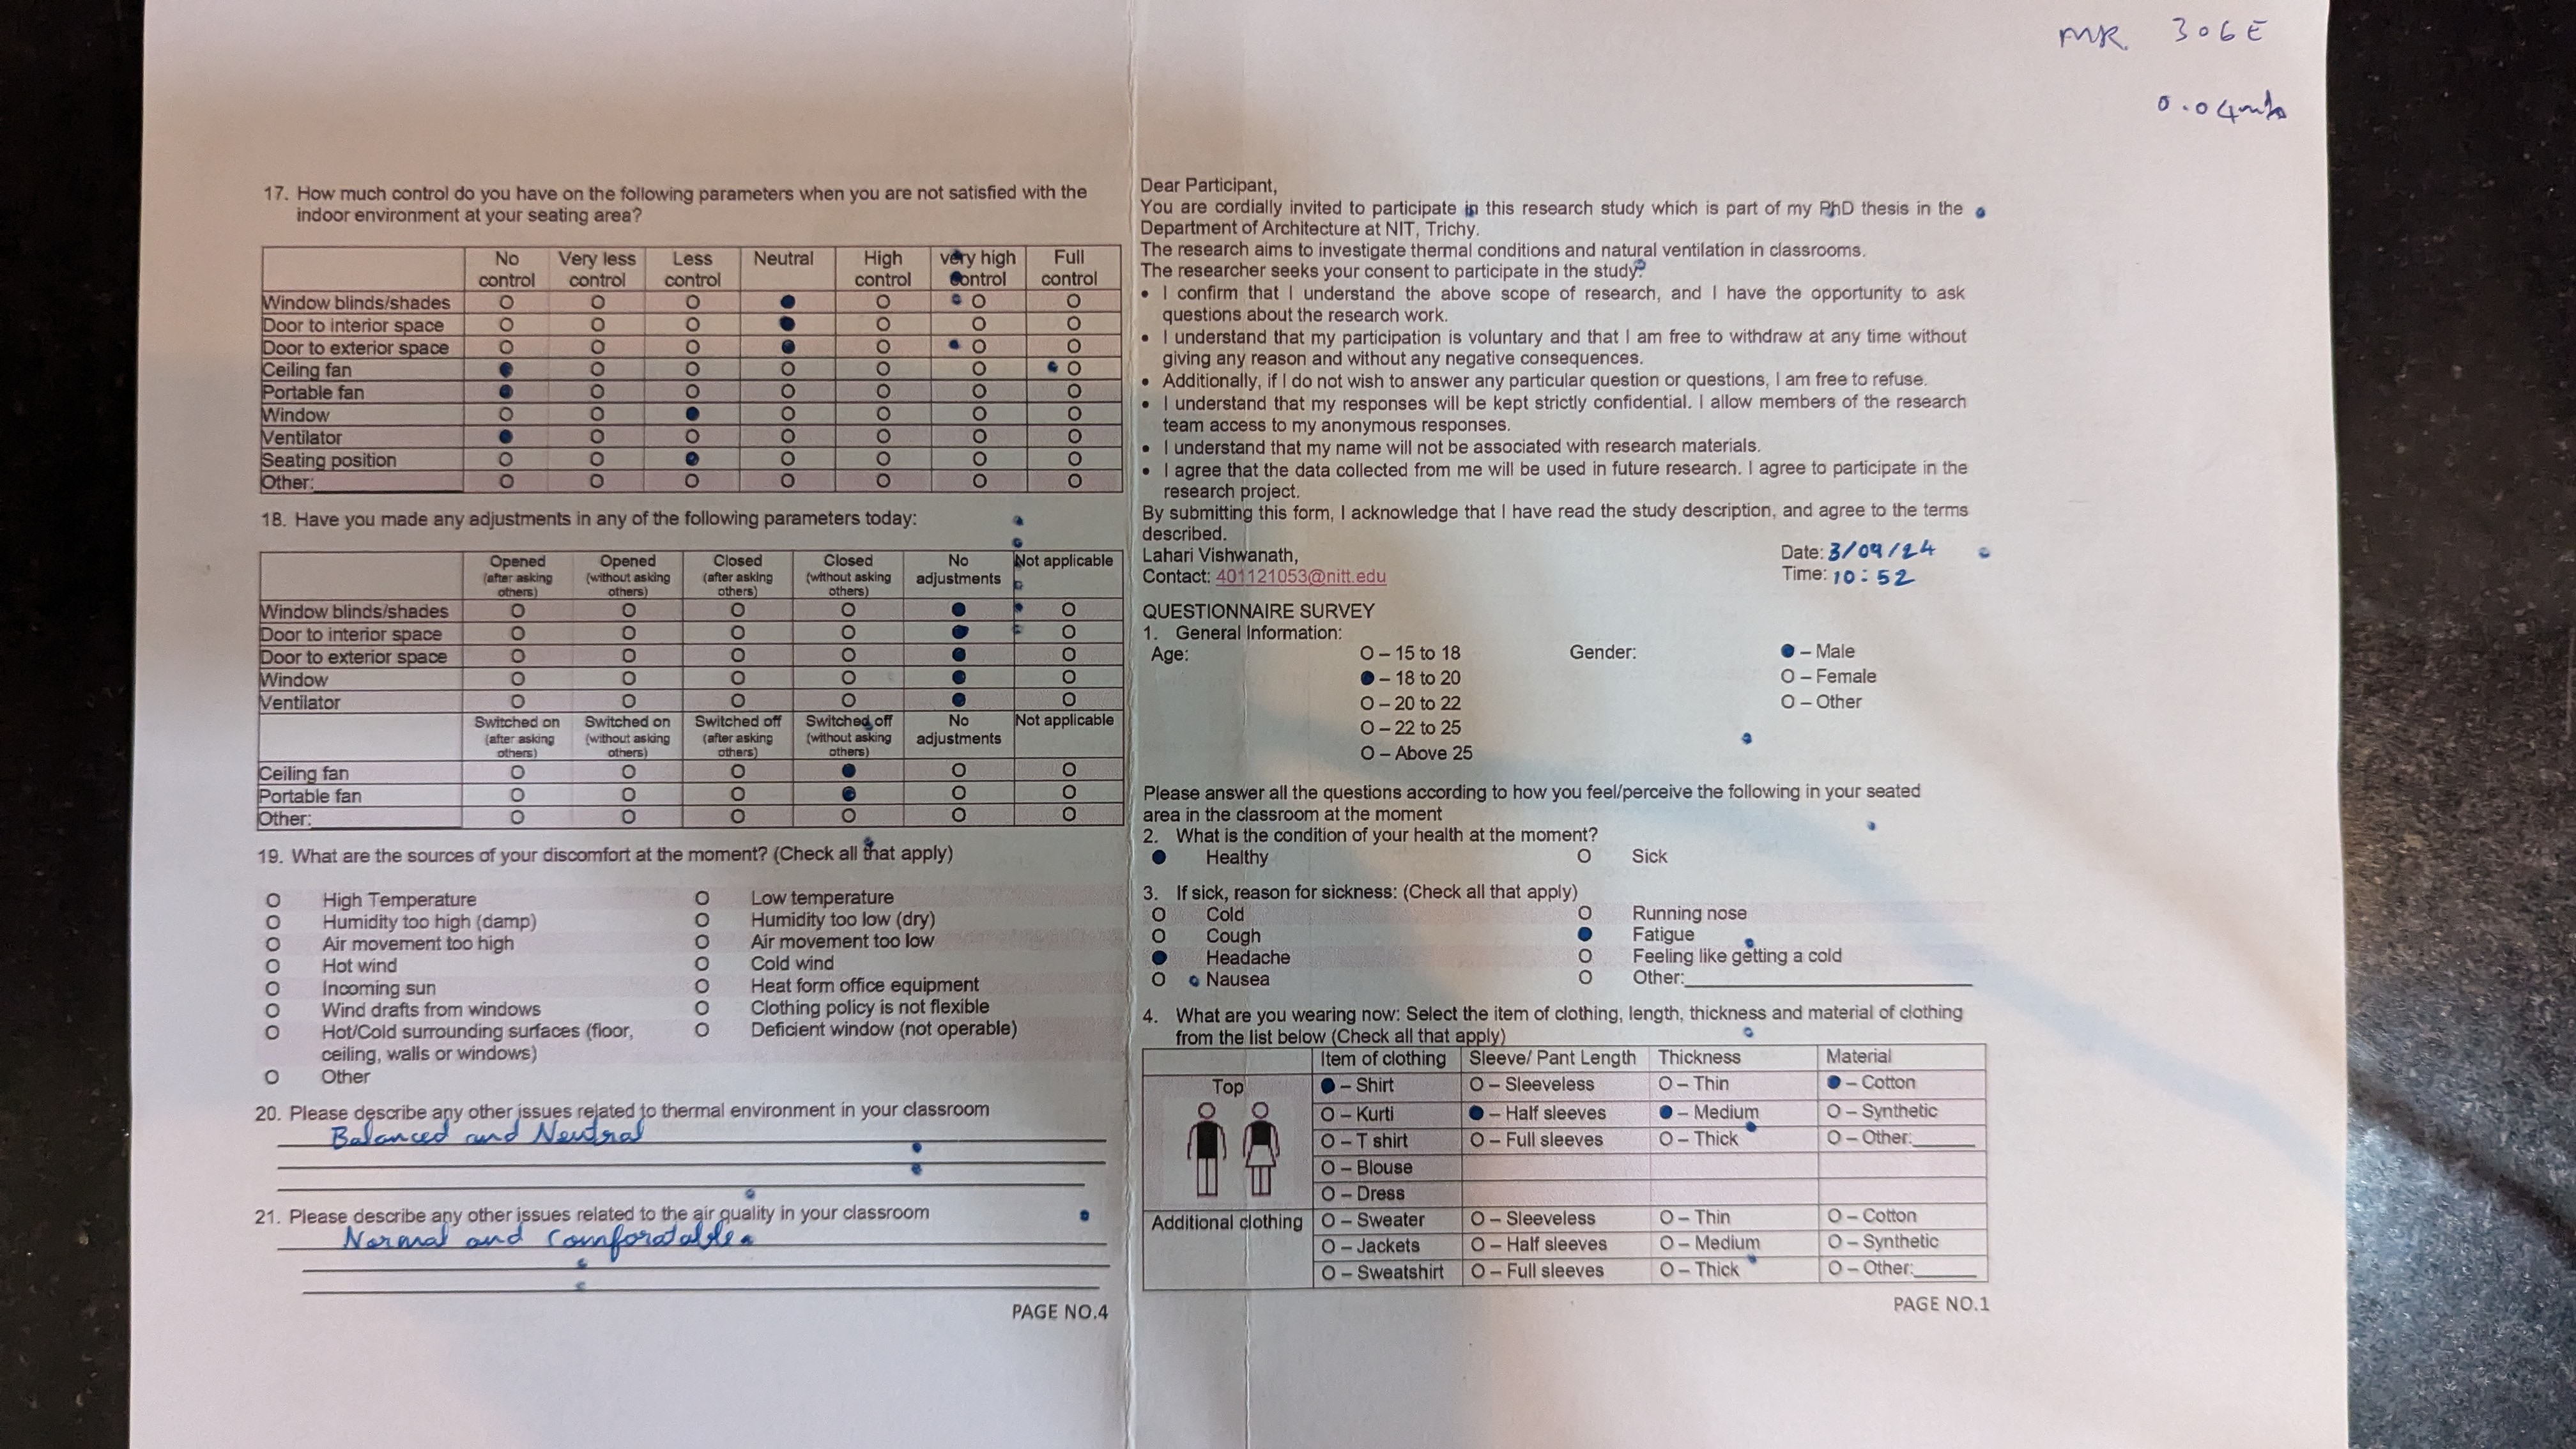 MR 306E
0.04m/s
17. How much control do you have on the following parameters when you are not satisfied with the
indoor environment at your seating area?
No control Very less control Less control Neutral High control very high control Full control
Window blinds/shades O O O ● O O O
Door to interior space O O O ● O O O
Door to exterior space O O O ● O O O
Ceiling fan ● O O O O O O
Portable fan ● O O O O O O
Window O O ● O O O O
Ventilator ● O O O O O O
Seating position O O ● O O O O
Other:_______ O O O O O O O
18. Have you made any adjustments in any of the following parameters today:
Opened (after asking others) Opened (without asking others) Closed (after asking others) Closed (without asking others) No adjustments Not applicable
Window blinds/shades O O O O ● O
Door to interior space O O O O ● O
Door to exterior space O O O O ● O
Window O O O O ● O
Ventilator O O O O ● O
Switched on (after asking others) Switched on (without asking others) Switched off (after asking others) Switched off (without asking others) No adjustments Not applicable
Ceiling fan O O O ● O O
Portable fan O O O ● O O
Other:_______ O O O O O O
19. What are the sources of your discomfort at the moment? (Check all that apply)
O High Temperature O Low temperature
O Humidity too high (damp) O Humidity too low (dry)
O Air movement too high O Air movement too low
O Hot wind O Cold wind
O Incoming sun O Heat form office equipment
O Wind drafts from windows O Clothing policy is not flexible
O Hot/Cold surrounding surfaces (floor, O Deficient window (not operable)
ceiling, walls or windows)
O Other
20. Please describe any other issues related to thermal environment in your classroom
Balanced and Neutral
21. Please describe any other issues related to the air quality in your classroom
Normal and Comforatable.
PAGE NO.4
Dear Participant,
You are cordially invited to participate in this research study which is part of my PhD thesis in the
Department of Architecture at NIT, Trichy.
The research aims to investigate thermal conditions and natural ventilation in classrooms.
The researcher seeks your consent to participate in the study?
• I confirm that I understand the above scope of research, and I have the opportunity to ask
questions about the research work.
• I understand that my participation is voluntary and that I am free to withdraw at any time without
giving any reason and without any negative consequences.
• Additionally, if I do not wish to answer any particular question or questions, I am free to refuse.
• I understand that my responses will be kept strictly confidential. I allow members of the research
team access to my anonymous responses.
• I understand that my name will not be associated with research materials.
• I agree that the data collected from me will be used in future research. I agree to participate in the
research project.
By submitting this form, I acknowledge that I have read the study description, and agree to the terms
described.
Lahari Vishwanath, Date: 3/09/24
Contact: 401121053@nitt.edu Time: 10:52
QUESTIONNAIRE SURVEY
1. General Information:
Age: O – 15 to 18 Gender: ● – Male
● – 18 to 20 O – Female
O – 20 to 22 O – Other
O – 22 to 25
O – Above 25
Please answer all the questions according to how you feel/perceive the following in your seated
area in the classroom at the moment
2. What is the condition of your health at the moment?
● Healthy O Sick
3. If sick, reason for sickness: (Check all that apply)
O Cold O Running nose
O Cough ● Fatigue
● Headache O Feeling like getting a cold
O Nausea O Other:_______
4. What are you wearing now: Select the item of clothing, length, thickness and material of clothing
from the list below (Check all that apply)
Item of clothing Sleeve/ Pant Length Thickness Material
Top ● – Shirt O – Sleeveless O – Thin ● – Cotton
O – Kurti ● – Half sleeves ● – Medium O – Synthetic
O – T shirt O – Full sleeves O – Thick O – Other:_____
O – Blouse
O – Dress
Additional clothing O – Sweater O – Sleeveless O – Thin O – Cotton
O – Jackets O – Half sleeves O – Medium O – Synthetic
O – Sweatshirt O – Full sleeves O – Thick O – Other:_____
PAGE NO.1